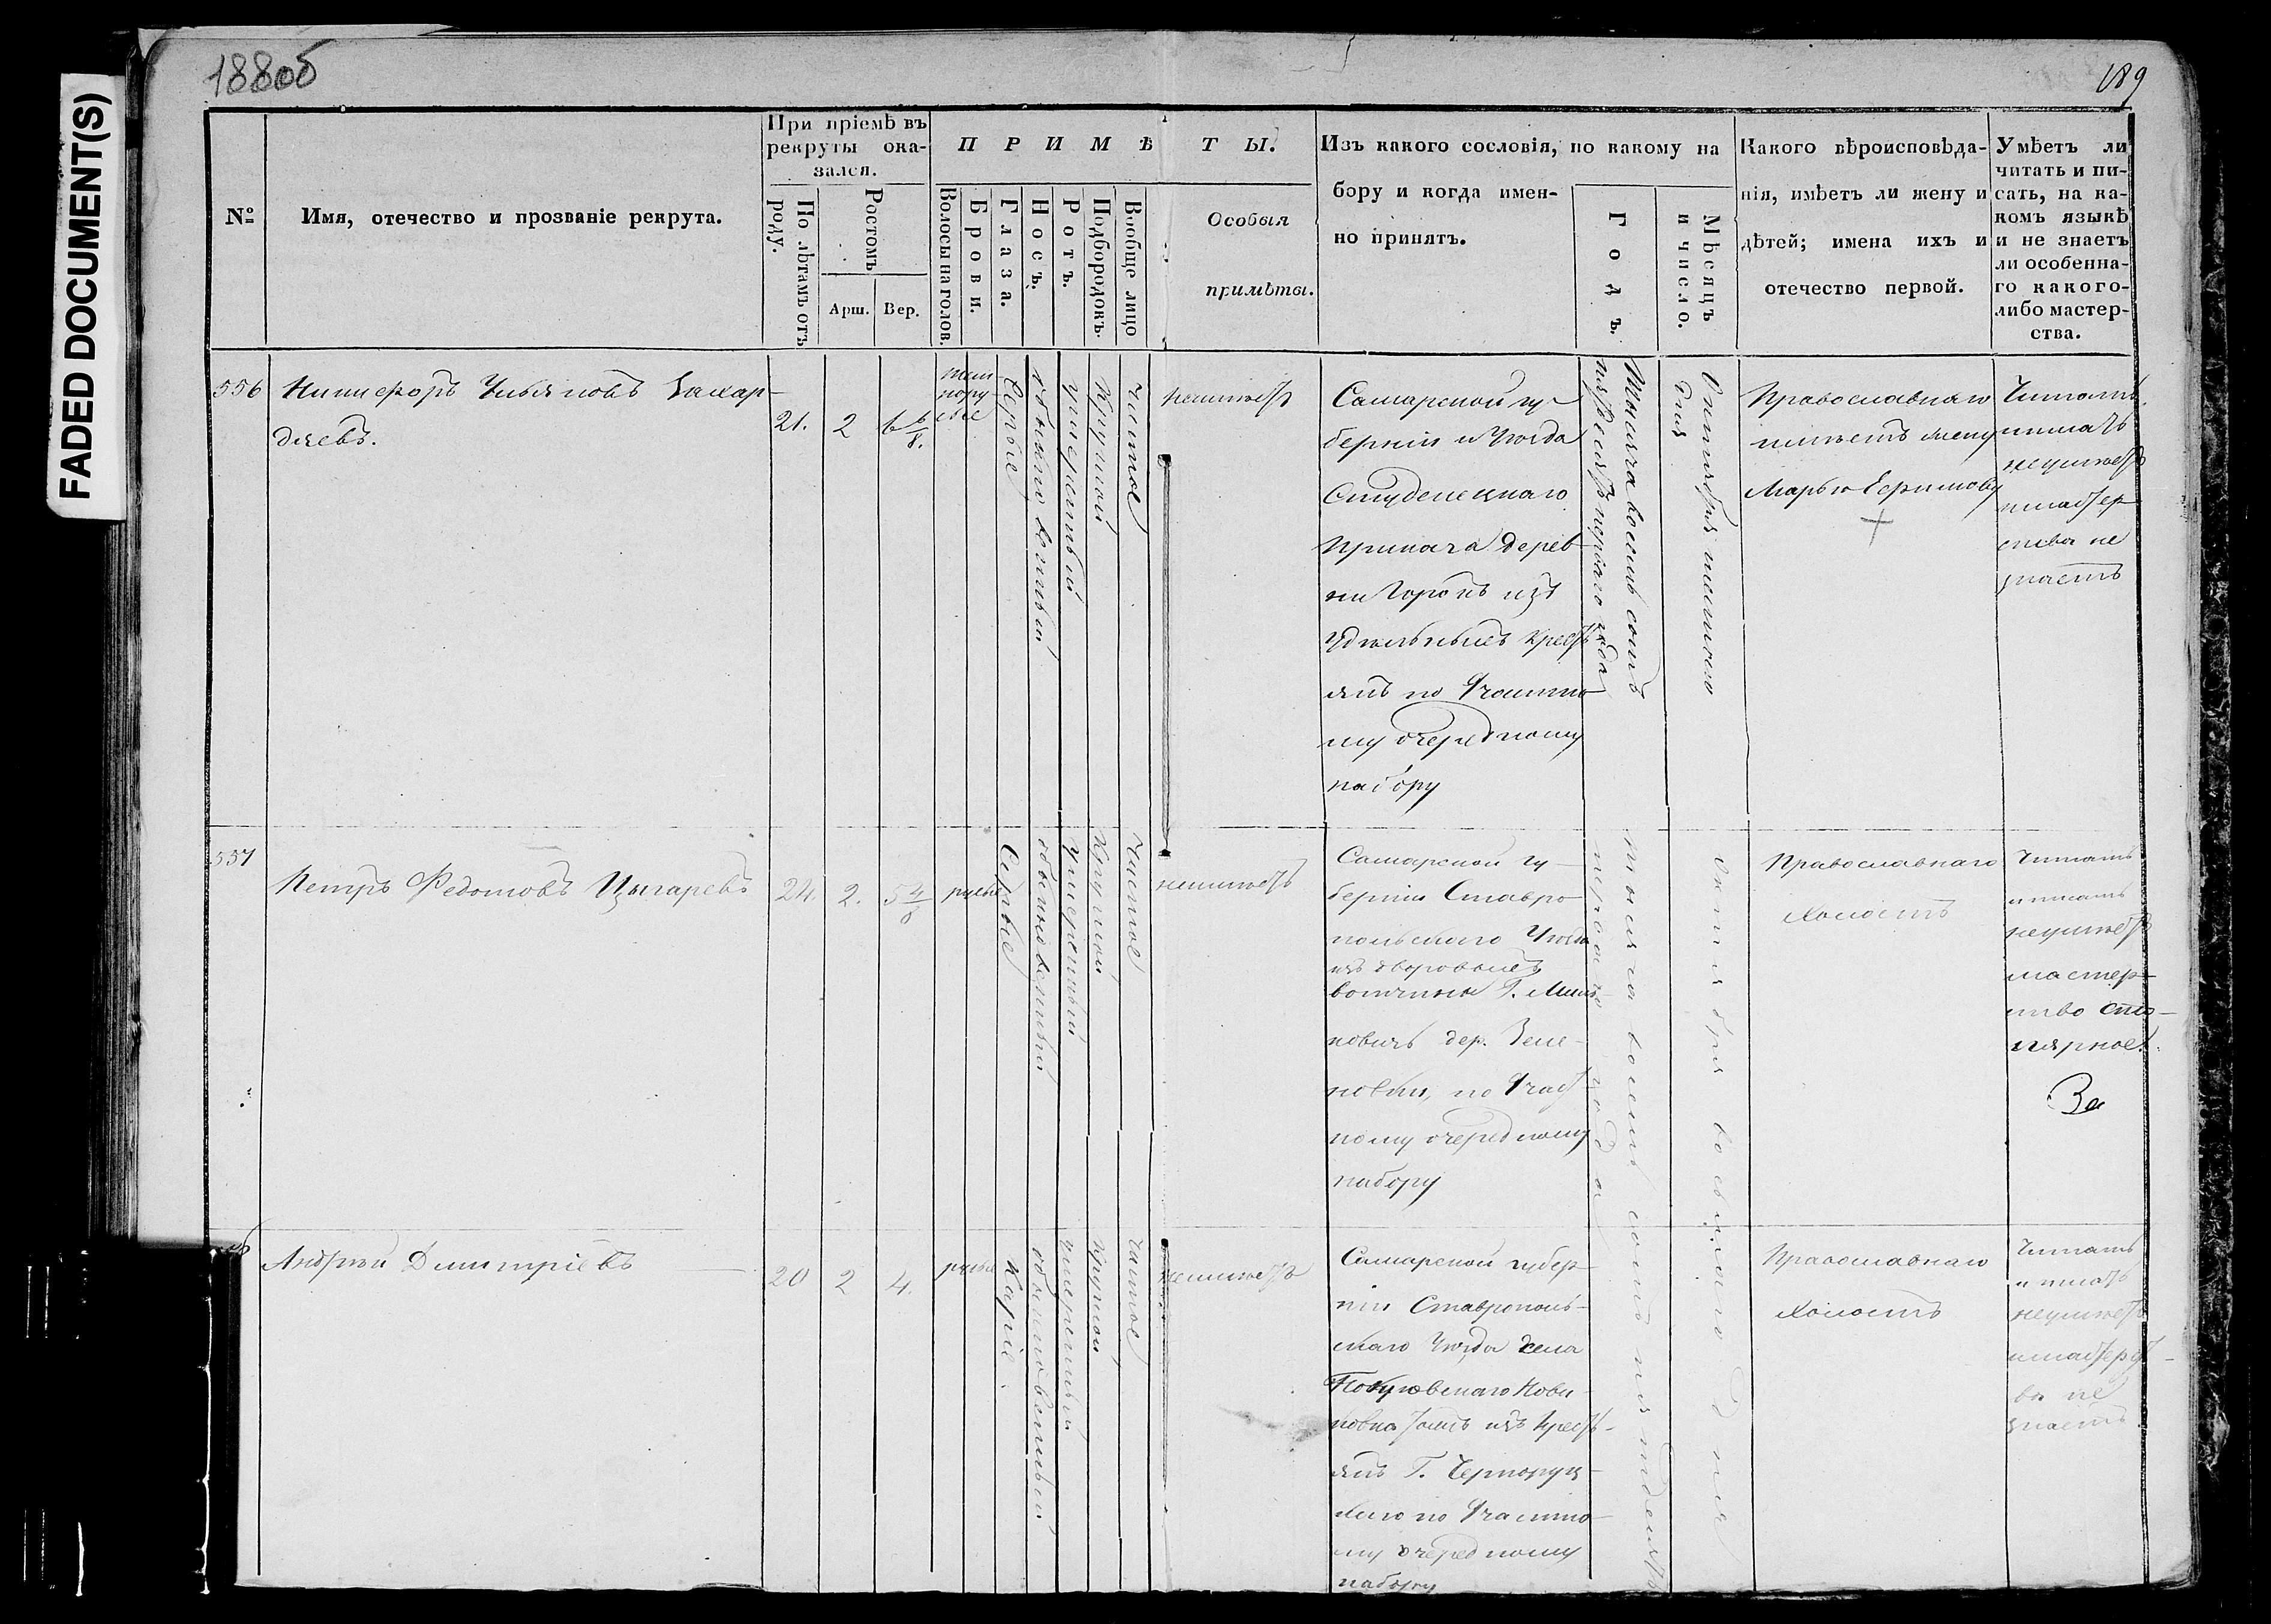 188об
189
FADED DOCUMENT(S)
№
Имя, отечество и прозваніе рекрута.
При пріемѣ въ
рекруты ока-
зался.
По лѣтамъ отъ
роду.
Ростомъ
Арш.
Вер.
ПРИМѢТЫ.
Волосы на голов.
Брови.
Глаза.
Носъ.
Ротъ.
Подбородокъ.
Вообще лицо
Особыя
примѣты.
Изъ какого сословія, по какому на
бору и когда имен-
но принятъ.
Годъ.
Мѣсяцъ
и число.
Какого вѣроисповѣда-
нія, имѣетъ ли жену и
дѣтей; имена ихъ и
отечество первой.
Умѣетъ ли
читать и пи-
сать, на ка-
комъ языкѣ
и не знаетъ
ли особенна-
го какого-
либо мастер-
ства.
556
Никифоръ Ульяновъ
21.
2
6 6/8.
Сѣрые
обыкновенный
умѣренный
круглой
чистое
неимѣетъ
Самарской гу-
берніи и Уѣзда
Студенецкаго
Приказа дерев-
ни Горокъ изъ
Удѣльныхъ крест-
янъ по Частно-
му очередному
набору
Тысяча восемь сотъ
пятьдесятъ перваго года
Октября
дня
Православнаго
имѣетъ жену
Марью Ефимову
Читать
писать
неумѣетъ
и мастер-
ства не
знаетъ
557
Петръ Федотовъ Цыгаревъ
24.
2.
5 4/8
русые
Сѣрые
обыкновенный
умѣренный
круглой
Чистое
неимѣетъ
Самарской гу-
берніи Ставро-
польскаго Уѣзда
изъ дворовыхъ
вотчины Г. Миль-
ковичъ дер. Зеле-
новки, по Част-
ному очередному
набору
Тысяча восемь сотъ пятьдесятъ
перваго года
октября восьмаго дня
Православнаго
Холостъ
Читать
и писать
неумѣетъ
мастер-
ство сто-
лярное.
За
Андрей Димитріевъ
20
2
4.
русые
Каріе.
обыкновенный
умѣренный
круглой
чистое
неимѣетъ
Самарской губер-
ніи Ставрополь-
скаго Уѣзда села
Покровскаго
тожъ изъ крест-
янъ Г. Черноруц-
каго по Частно-
му очередному
набору
Православнаго
Холостъ
Читать
и писать
неумѣетъ
и мастерст-
ва не
знаетъ